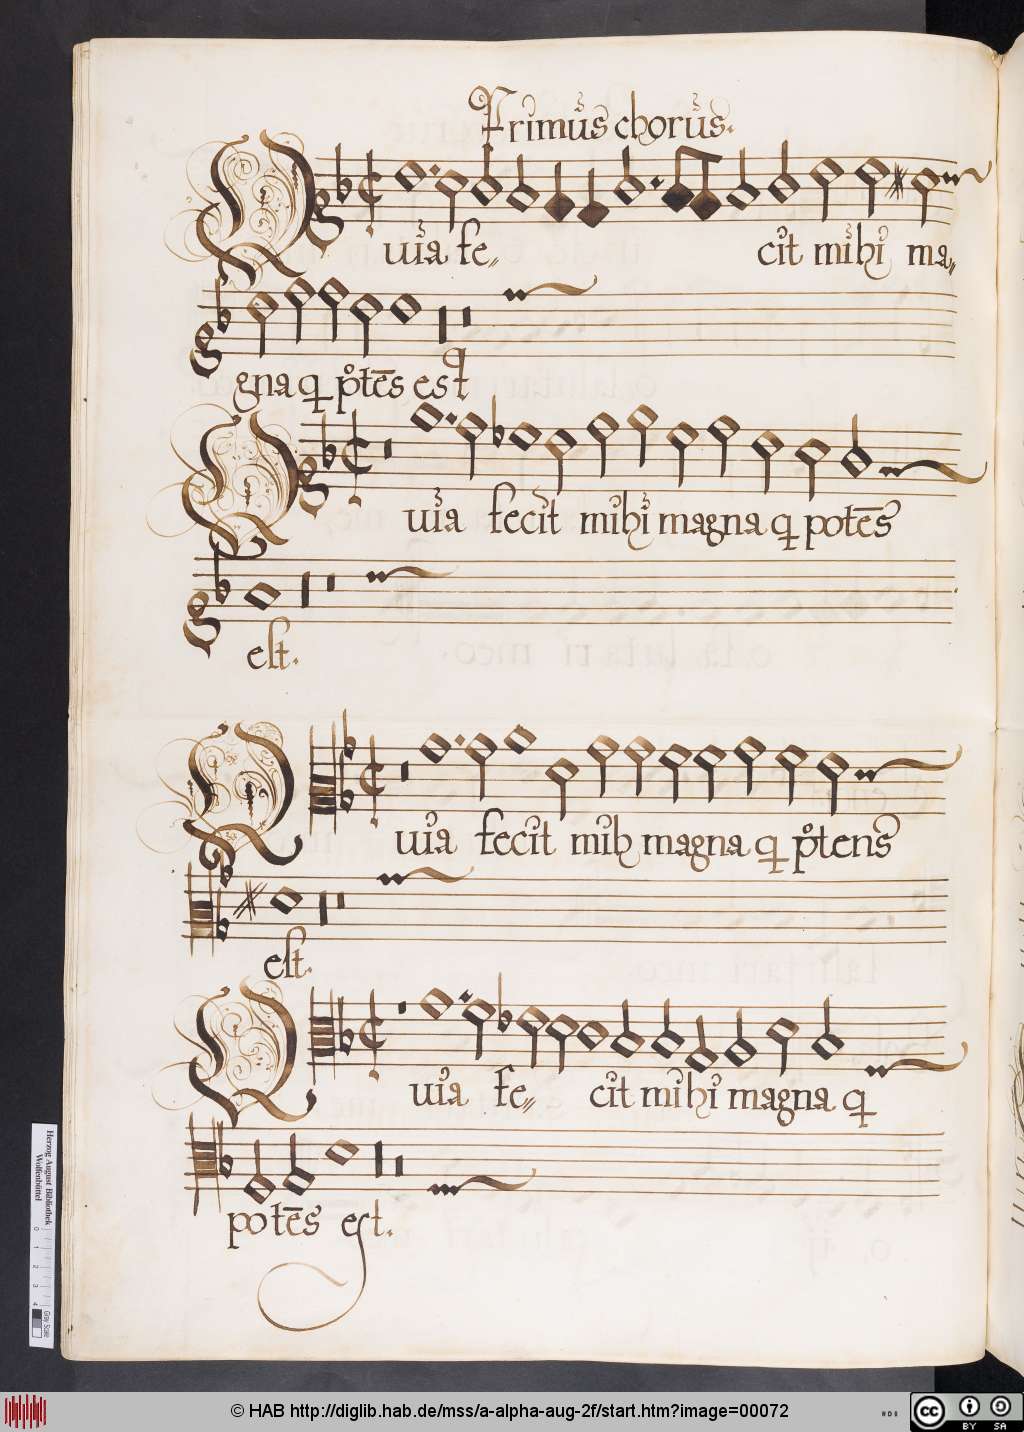 Primus chorus.
Quia fe= cit mihi ma=
gna q potes est
Quia fecit mihi magna q potes
est.
Quia fecit mih magna q potens
est.
Quia fe= cit mihi magna q
potes est.
Herzog August Bibliothek
Wolfenbüttel
0 1 2 3 4
Gray Scale
© HAB http://diglib.hab.de/mss/a-alpha-aug-2f/start.htm?image=00072
cc BY SA